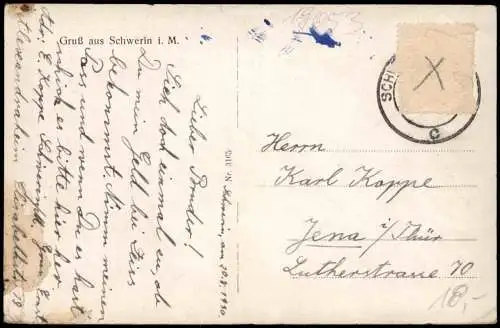 Gruß aus Schwerin i. M.
Schwerin, am 20.8.1930
Lieber Bruder!
Sieh doch einmal zu, ob
Du mein Geld bei
bekommst. Nimm meinen
Pass und wenn Du es hast,
schicke es bitte hier her
Adr. E. Koppe Schwerin
Alexandraheim
Herrn
Karl Koppe
Jena i/Thür
Lutherstrasse 70
18,-
SCH
c
X